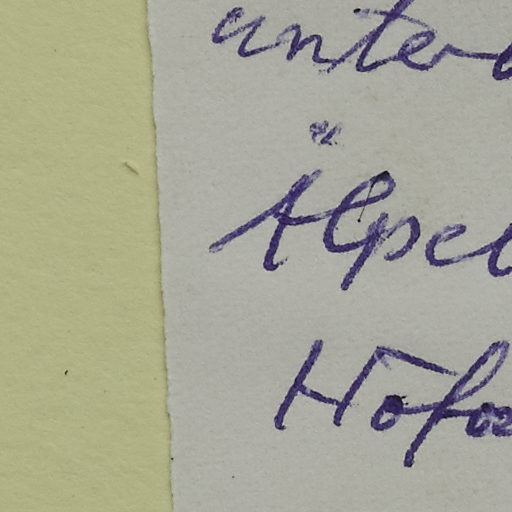 unter
"
Alpe
Hofo